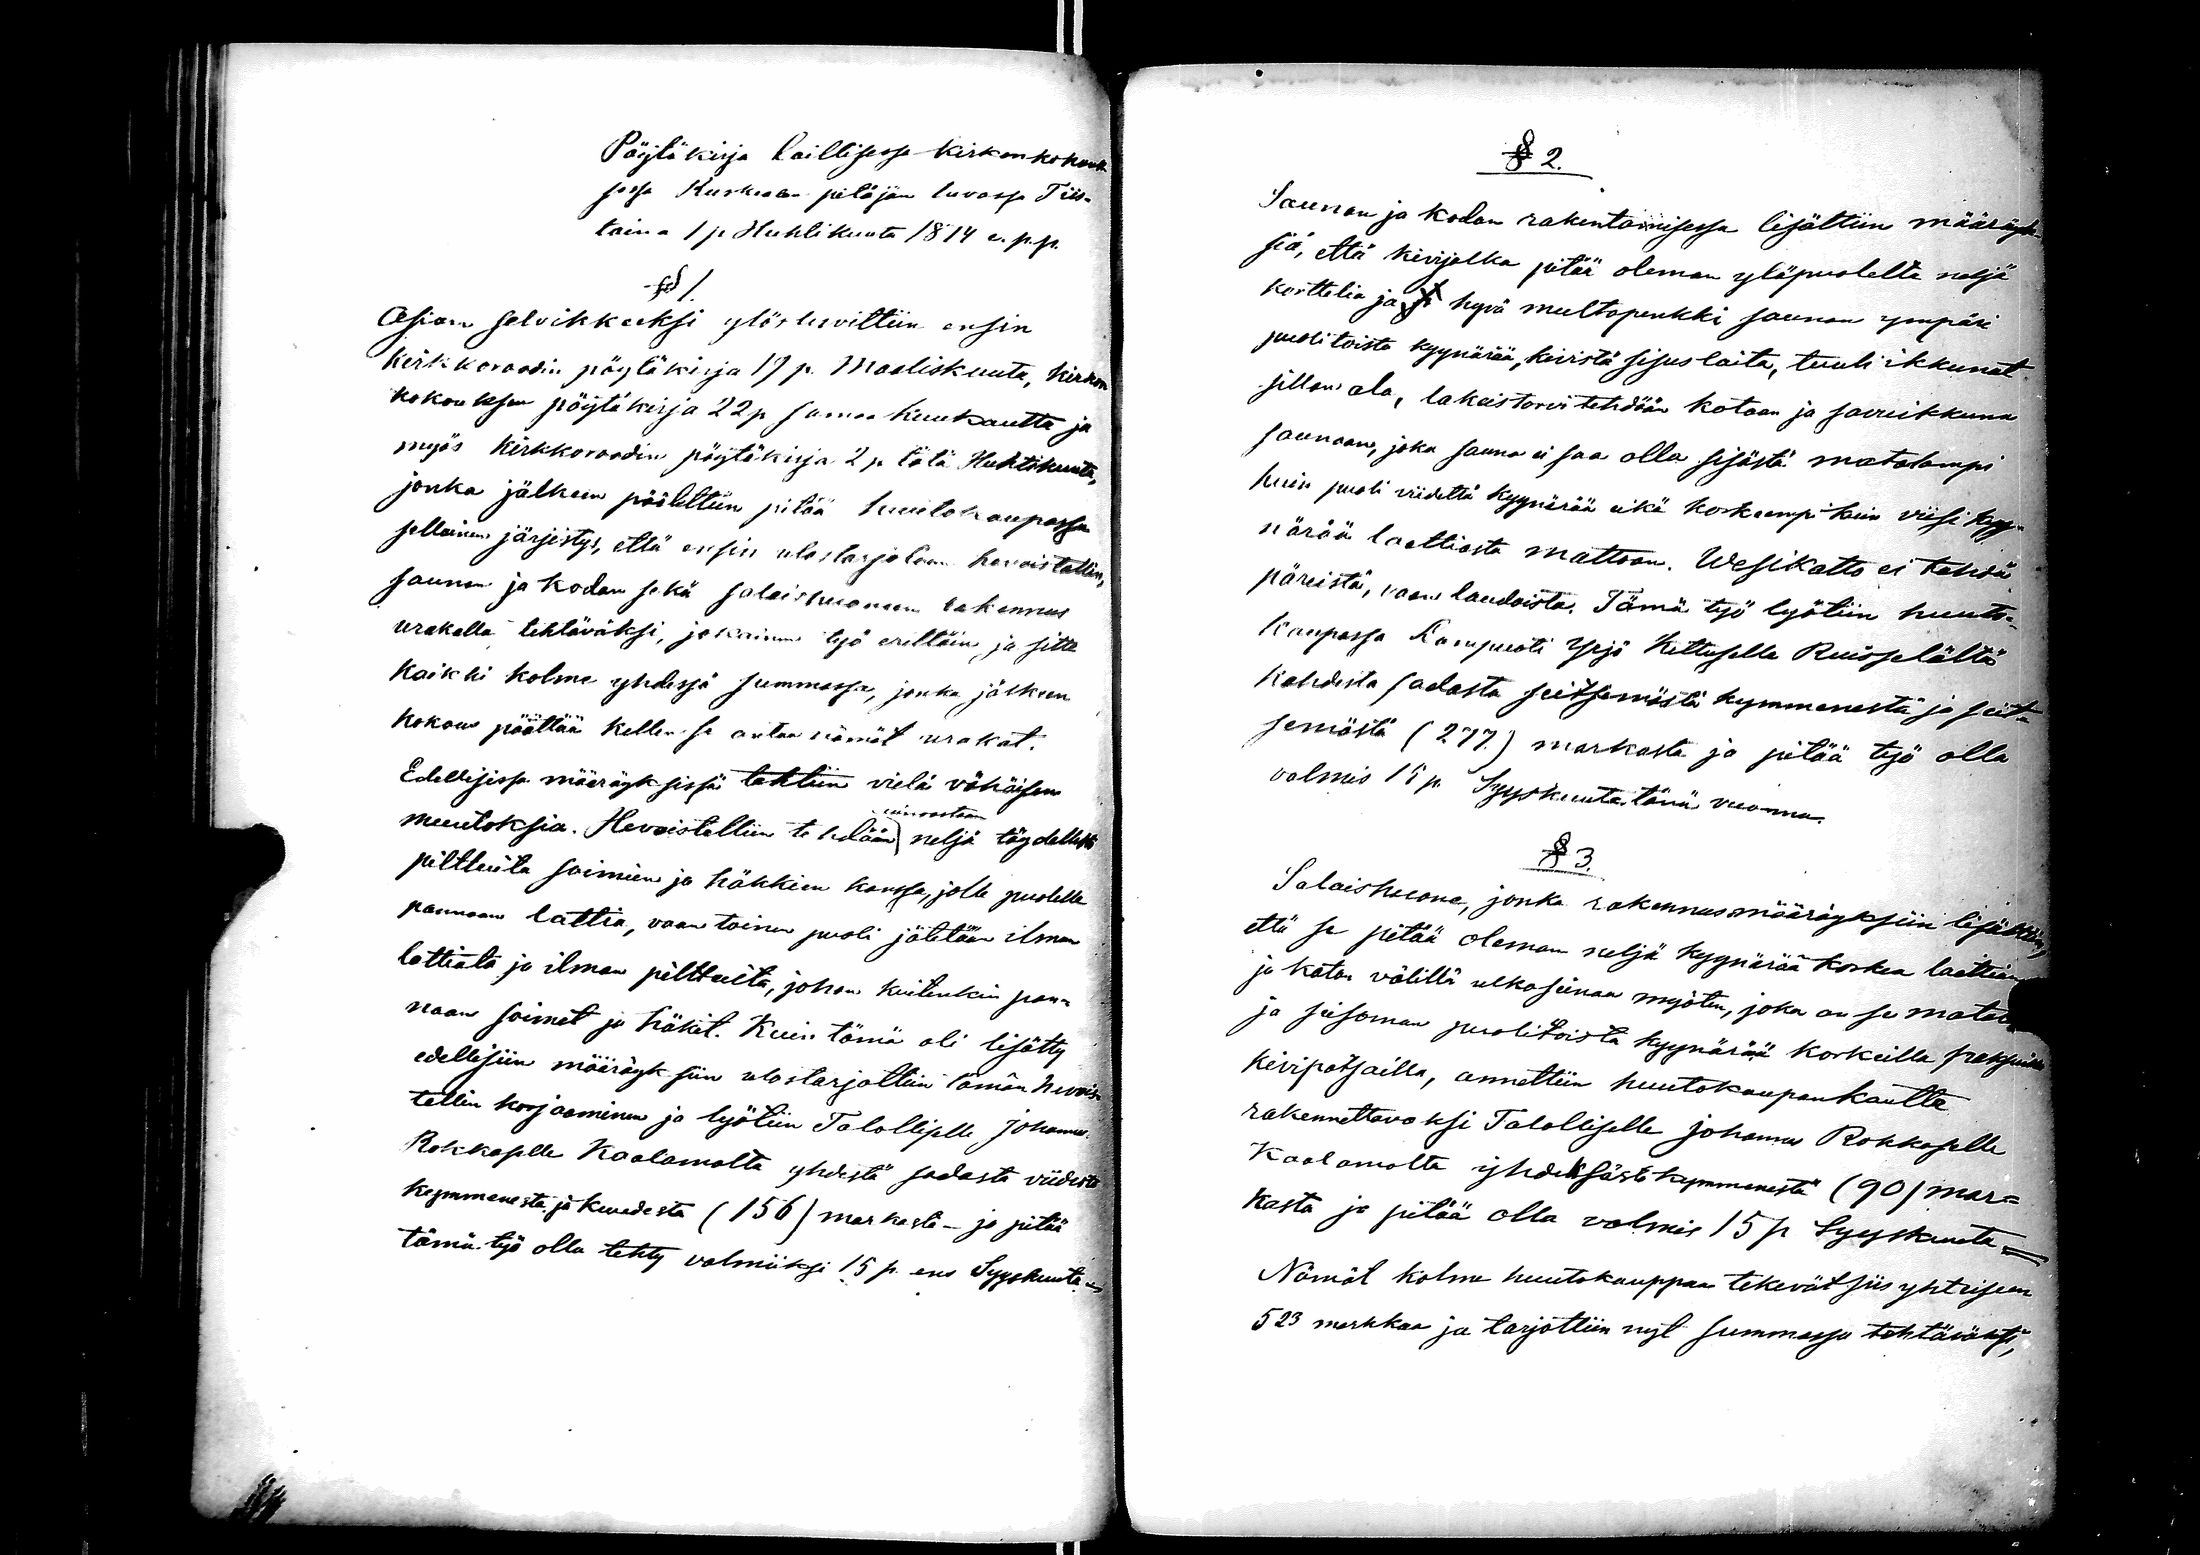 Pöytäkirja laillisessa kirkonkokouk
sessa Kurkijoen pitäjän tuvassa Tiis-
taina 1 p. Huhtikuuta 1874 e. p. p.
§ 1.
Asian selvikkeeksi ylösluvittiin ensin
kirkkoraadin pöytäkirja 19 p. Maaliskuuta, kirkon
kokouksen pöytäkirja 22 p samaa kuukautta ja
myös kirkkoraadin pöytäkirja 2 p. tätä Huhtikuuta,
jonka jälkeen päätettiin pitää huutokaupassa
sellainen järjestys, että ensin ulostarjotaan hevoistallin,
saunan ja kodan sekä salaishuoneen rakennus
urakalla tehtäväksi, jokainen työ erittäin ja sitte
kaikki kolme yhdessä summassa, jonka jälkeen
kokous päättää kellen se antaa nämät urakat.
Edellisissä määräyksissä tehtiin vielä vähäisen
muutoksia. Hevoistalliin tehdään neljä täydellistä
pilttuita soimien ja häkkien kanssa, jolle puolelle
pannaan lattia, vaan toinen puoli jätetään ilman
lattiata ja ilman pilttuita, johon kuitenkin pan-
naan soimet ja häkit. Kuin tämä oli lisätty
edellisiin määräyksiin ulostarjottiin tämän hevois
tallin korjaaminen ja lyötiin Talolliselle Johannes
Rokkaselle Kaalamolta yhdestä sadasta viidestä
kymmenestä ja kuudesta (156) markasta - ja pitää
tämä työ olla tehty valmiiksi 15 p. ens Syyskuuta. -
§ 2.
Saunan ja kodan rakentamisessa lisättiin määräyk-
siä, että kivijalka pitää oleman yläpuolelta neljä
korttelia ja hyvä multapenkki saunan ympäri
puolitoista kyynärää, kivistä sisuslaita, tuuli ikkunat
sillan ala, lakeistorvi tehdään kotaan ja savuikkuna
saunaan, joka sauna ei saa olla sisästä matalampi
kuin puoli viidettä kyynärää eikä korkeampi kuin viisi kyy-
närää laattiasta mattoon. Wesikatto ei tehdä
päreistä, vaan laudoista. Tämä työ lyötiin huuto-
kaupassa Kampuoti Yrjö Kettuselle Ruisselältä
kahdesta sadasta seitsemästä kymmenestä ja seit-
semästä (277.) markasta ja pitää työ olla
valmis 15 p. Syyskuuta tänä vuonna.
§ 3.
Salaishuone, jonka rakennusmääräyksiin lisättiin,
että se pitää oleman neljä kyynärää korkea laattian
ja katon välillä ulkoseinää myöten, joka on se
ja seisoman puolitoista kyynärää korkeilla
kivipatsailla, annettiin huutokaupan kautta
rakennettavaksi Talolliselle Johannes Rokkaselle
Kaalamolta yhdeksästä kymmenestä (90) mar=
kasta ja pitää olla valmis 15 p Syyskuuta =
Nämät kolme huutokauppaa tekevät siis yhteiseen
523 markkaa ja tarjottiin nyt summassa tehtäväksi,